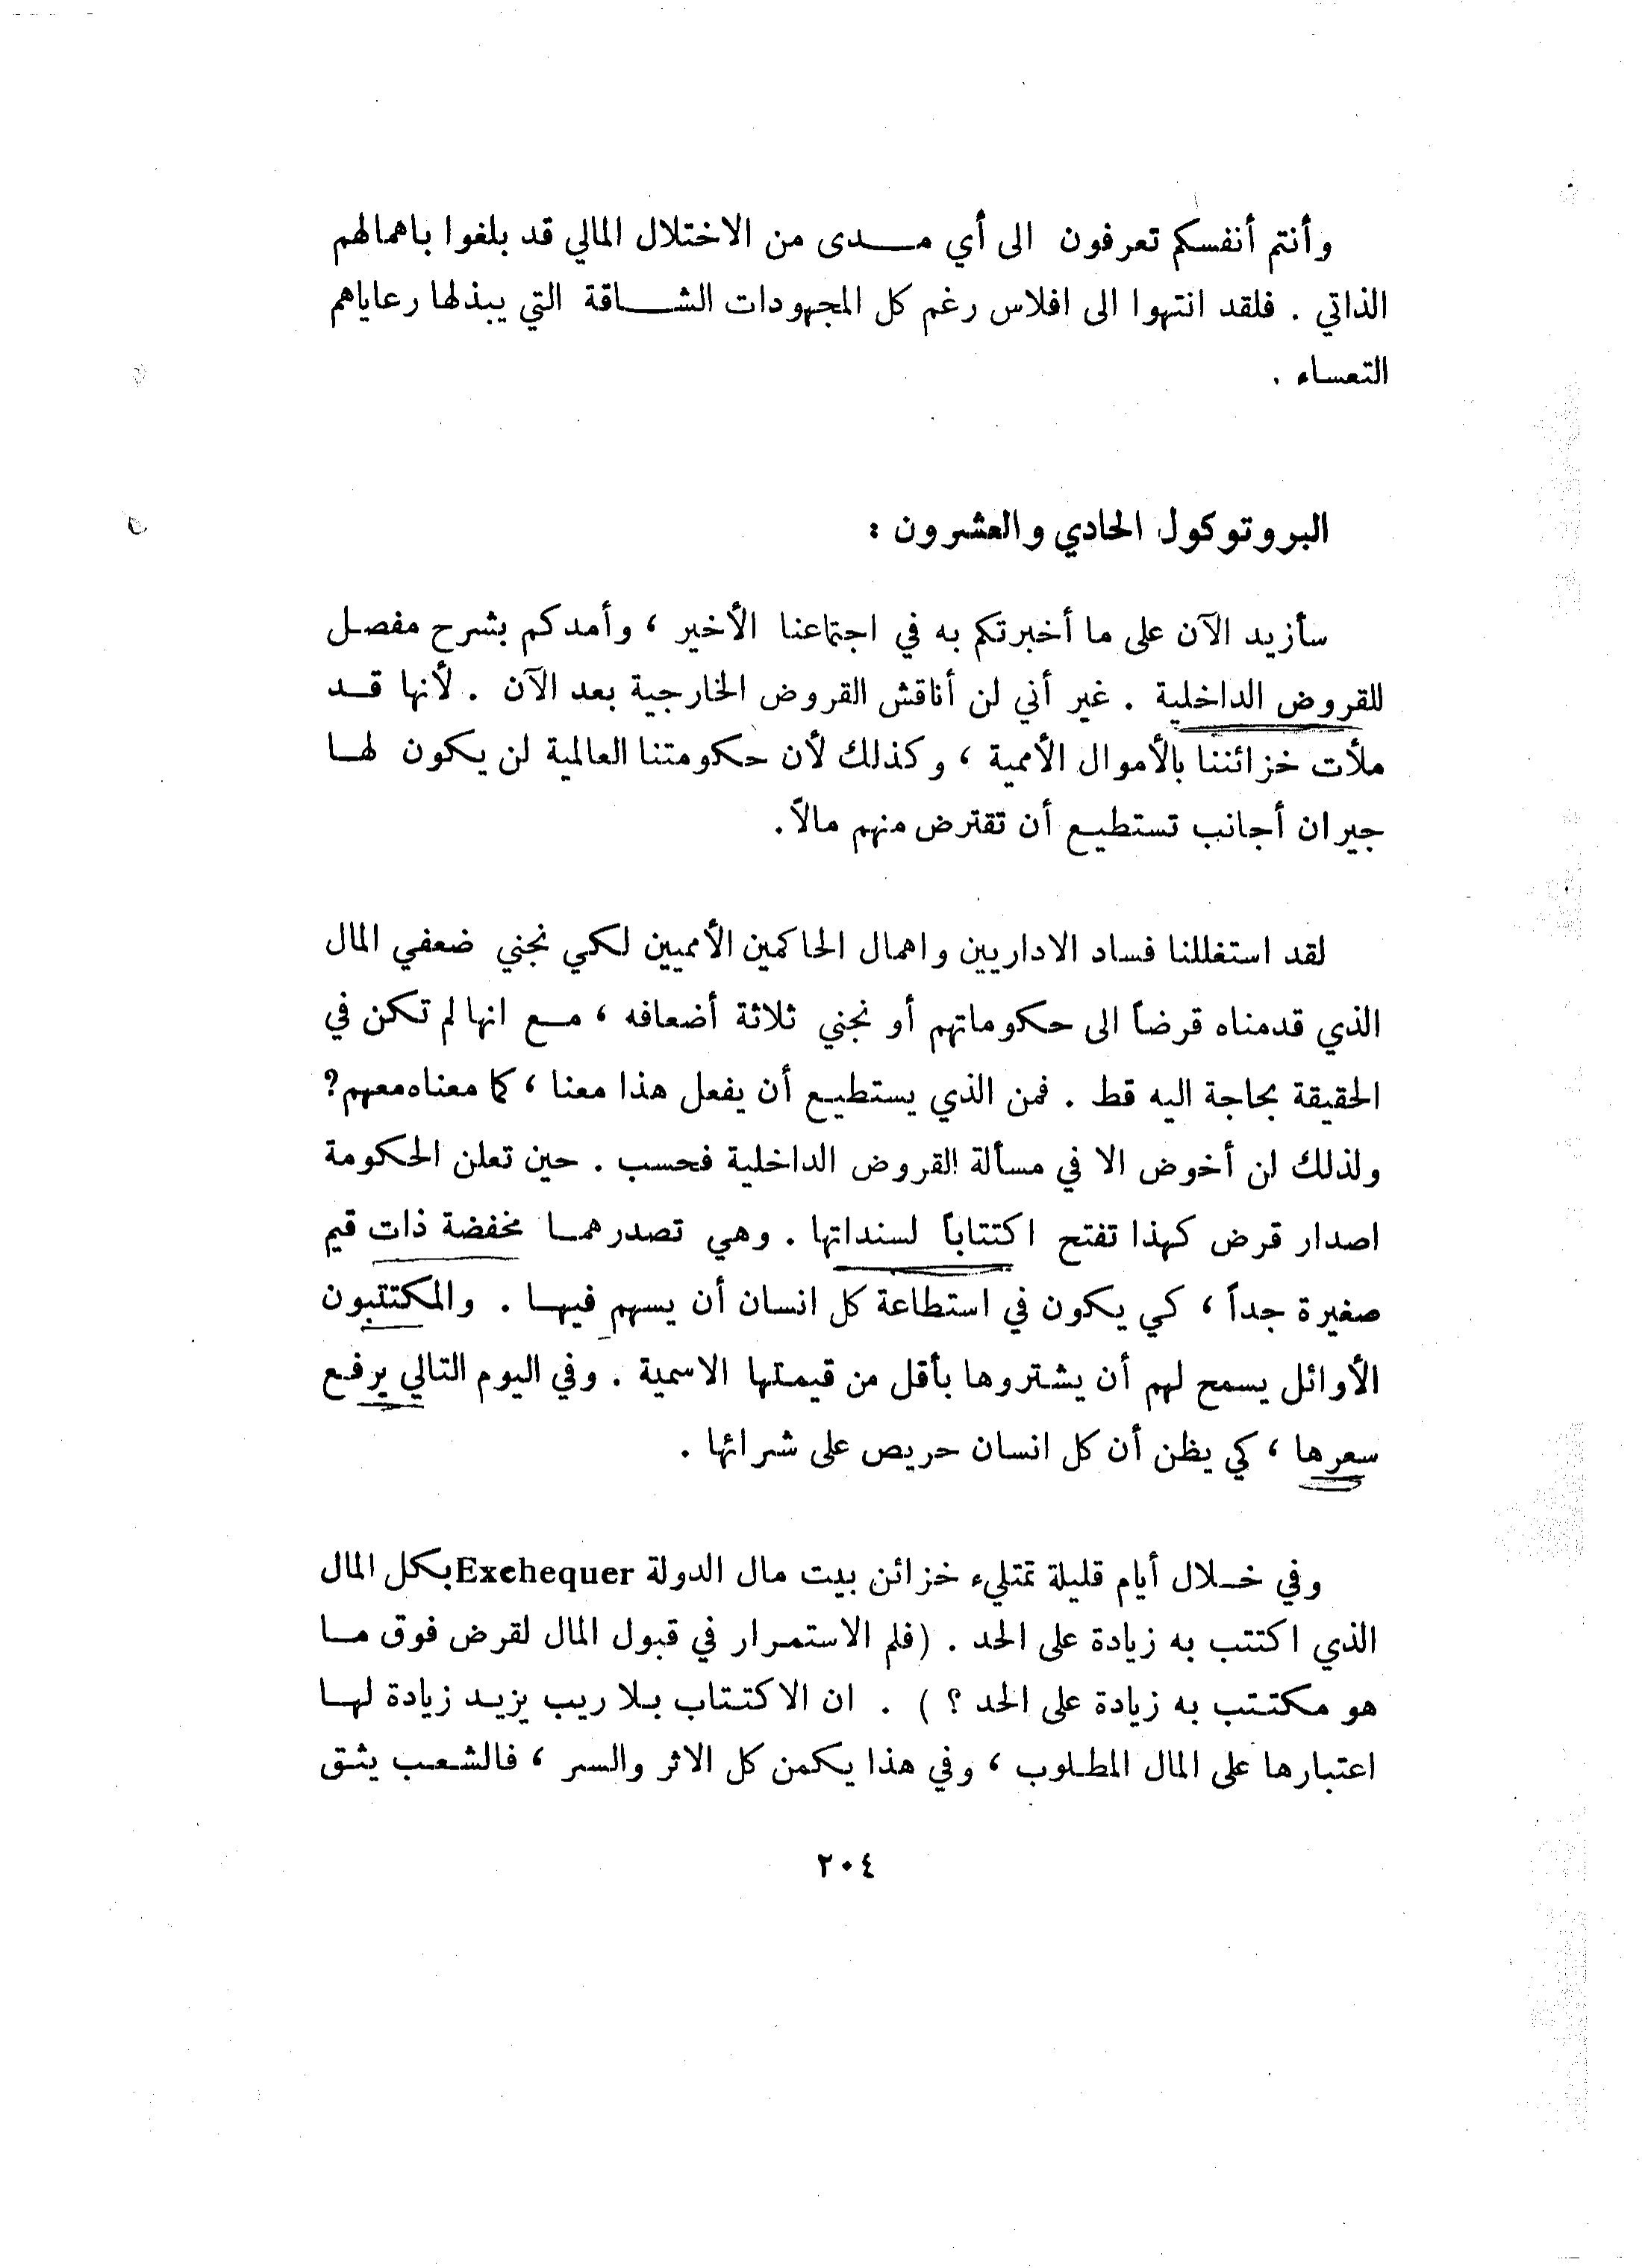 وأنتم أنفسكم تعرفون الى أي مدى من الاختلال المالي قد بلغوا باهمالهم
الذاتي . فلقد انتهوا الى افلاس رغم كل المجهودات الشاقة التي يبذلها رعاياهم
التعساء .
البروتوكول الحادي والعشرون :
سأزيد الآن على ما أخبرتكم به في اجتماعنا الأخير ، وأمدكم بشرح مفصل
للقروض الداخلية . غير أني لن أناقش القروض الخارجية بعد الآن . لأنها قد
ملأت خزائننا بالأموال الأممية ، وكذلك لأن حكومتنا العالمية لن يكون لها
جيران أجانب تستطيع أن تقترض منهم مالاً .
لقد استغللنا فساد الاداريين واهمال الحاكمين الأمميين لكي نجني ضعفي المال
الذي قدمناه قرضاً الى حكوماتهم أو نجني ثلاثة أضعافه ، مع انها لم تكن في
الحقيقة بحاجة اليه قط . فمن الذي يستطيع أن يفعل هذا معنا ، كما معناه معهم ?
ولذلك لن أخوض الا في مسألة القروض الداخلية فحسب . حين تعلن الحكومة
اصدار قرض كهذا تفتح اكتتاباً لسنداتها . وهي تصدرهما مخفضة ذات قيم
صغيرة جداً ، كي يكون في استطاعة كل انسان أن يسهم فيها . والمكتتبون
الأوائل يسمح لهم أن يشتروها بأقل من قيمتها الاسمية . وفي اليوم التالي يرفع
سعرها ، كي يظن أن كل انسان حريص على شرائها .
وفي خلال أيام قليلة تمتليء خزائن بيت مال الدولة Exchequer بكل المال
الذي اكتتب به زيادة على الحد . (فلم الاستمرار في قبول المال لقرض فوق ما
هو مكتتب به زيادة على الحد ؟ ) . ان الاكتتاب بلا ريب يزيد زيادة لها
اعتبارها على المال المطلوب ، وفي هذا يكمن كل الاثر والسر ، فالشعب يثق
٢٠٤